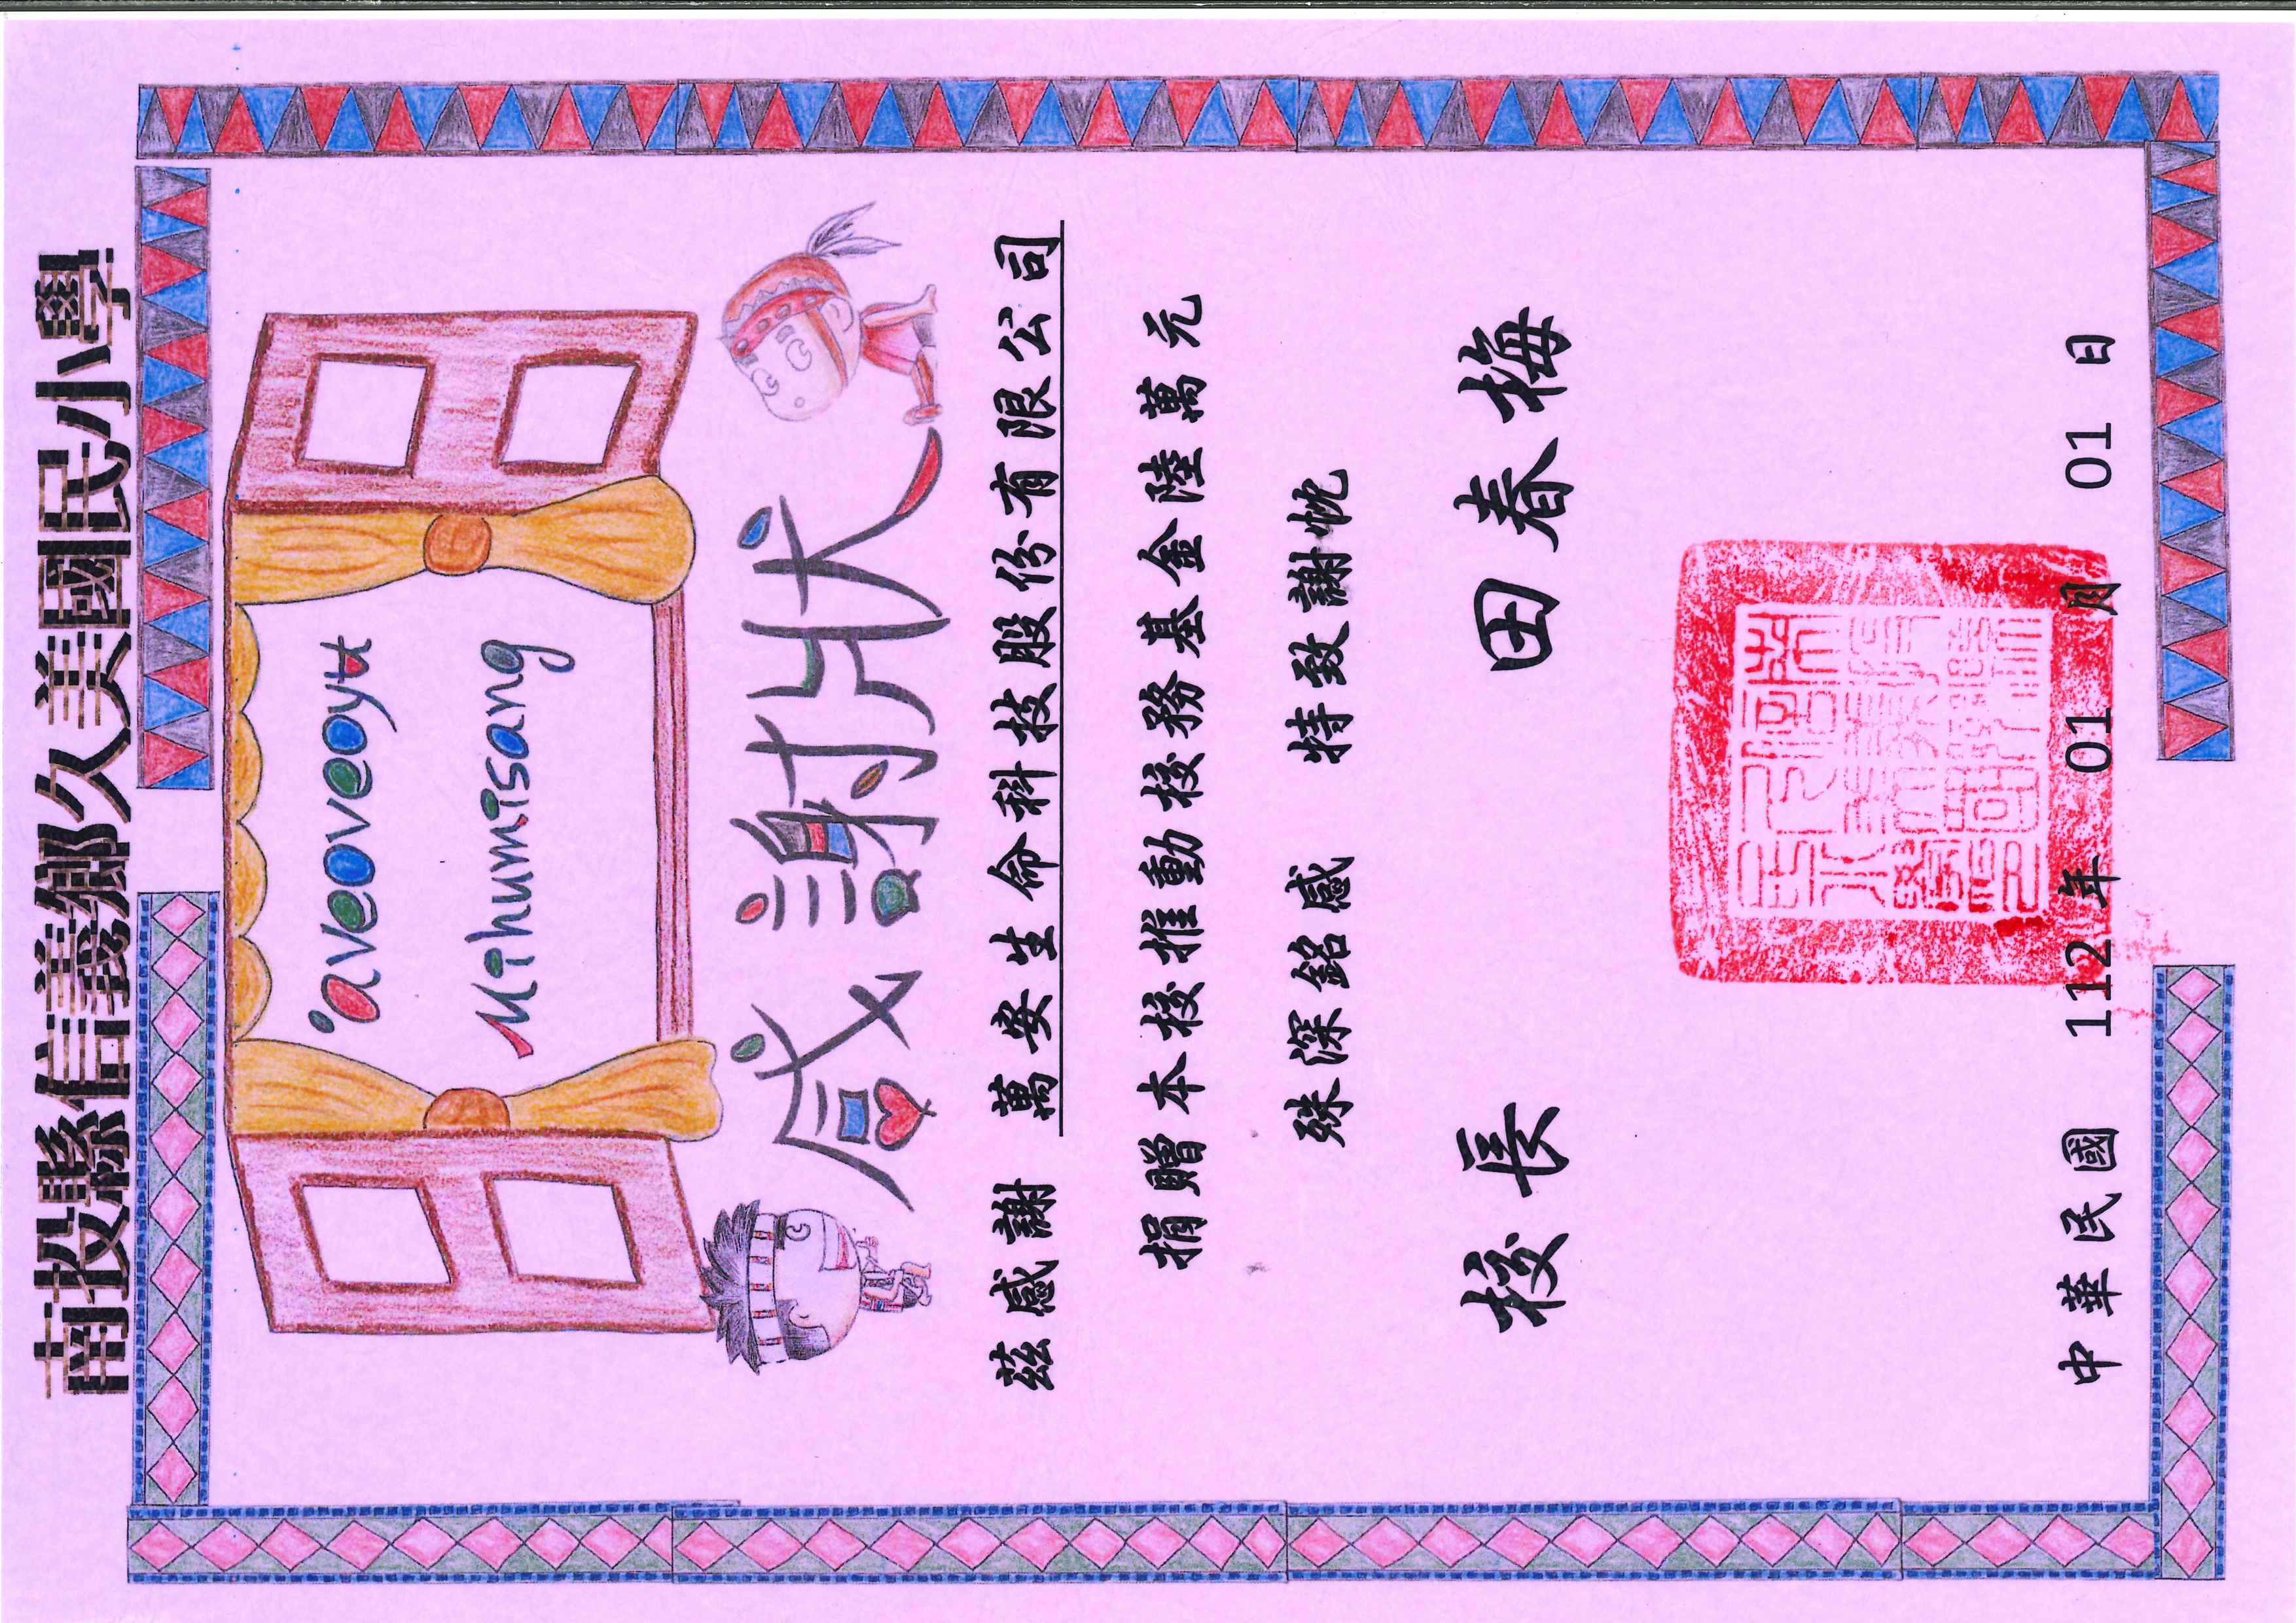 南投縣信義鄉久美國民小學
'aveoveoyu
Mihumisang
感謝狀
茲感謝 萬安生命科技股份有限公司
捐贈本校推動校務基金陸萬元
殊深銘感 特致謝忱
校長 田春梅
中華民國 112 年 01 月 01 日